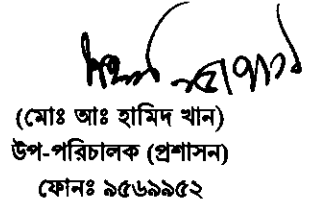 (মোঃ আঃ হামিদ খান)
উপ-পরিচালক (প্রশাসন)
ফোনঃ ৯৫৬৯৯৫২